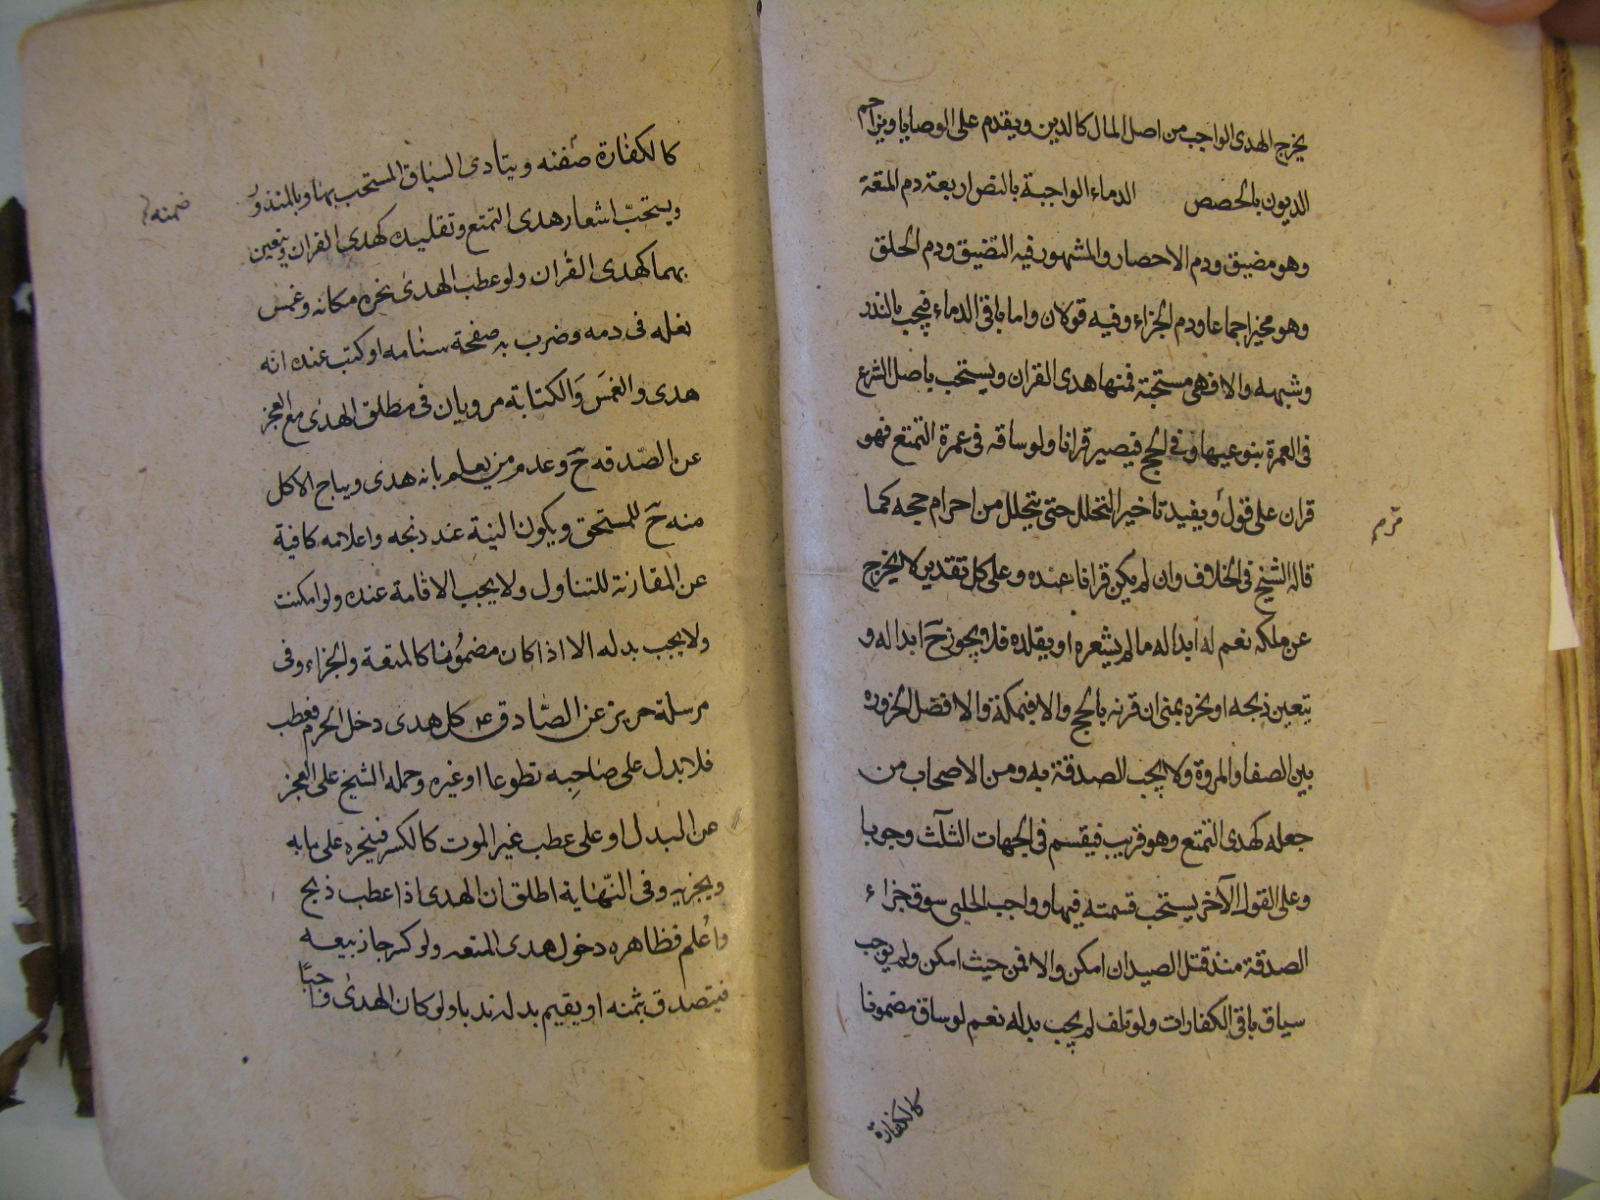 يخرج الهدى الواجب من اصل المال كالدين ويقدم على الوصايا ويزاحم
الديون بالحصص الدماء الواجبة بالنص اربعة دم المتعة
وهو مضيق ودم الاحصار والمشهور فيه التضيق ودم الحلق
وهو مخير اجماعا ودم الجزاء وفيه قولان واما باقى الدماء فيجب بالنذر
وشبهه والا فهى مستحبة فمنها هدى القران ويستحب باصل الشرع
فى العمرة بنوعيها وفى الحج فيصير قرانا ولو ساقه فى عمرة التمتع فهو
قران على قول ويفيد تاخير التحلل حتى يتحلل من احرام حجه كما
قاله الشيخ فى الخلاف وان لم يكن قرانا عنده وعلى كل تقدير لا يخرج
عن ملكه نعم له ابداله ما لم يشعره او يقلده فلا يجوز ح ابداله و
يتعين ذبحه او نحره بمنى ان قرنه بالحج والا فبمكة والافضل الحزورة
بين الصفا والمروة ولا يجب الصدقة به ومن الاصحاب من
جعله كهدى التمتع وهو قريب فيقسم فى الجهات الثلث وجوبا
وعلى القول الآخر يستحب قسمته فيها واوجب الحلبى سوق جزاء
الصيد منذ قتل الصيد ان امكن والا فمن حيث امكن ولم يوجب
سياق باقى الكفارات ولو تلف لم يجب بدله نعم لو ساق مضمونا
كالكفارة
كالكفارة ضمنه ويتادى السياق المستحب بها وبالمنذور
ضمنه
ويستحب اشعار هدى التمتع وتقليده كهدى القران ويتعين
بهما كهدى القران ولو عطب الهدى نحره مكانه وغمس
نعله فى دمه وضرب به صفحة سنامه او كتب عنده انه
هدى والغمس والكتابة مرويان فى مطلق الهدى مع العجز
عن الصدقه ح وعدم من يعلم بانه هدى ويباح الاكل
منه ح للمستحق ويكون النية عند ذبحه واعلامه كافية
عن المقارنة للتناول ولا يجب الاقامة عنده ولو امكنت
ولا يجب بدله الا اذا كان مضمونا كالمتعة والجزاء وفى
مرسلة حريز عن الصادق ع كل هدى دخل الحرم فعطب
فلا بدل على صاحبه تطوعا او غيره وحمله الشيخ على العجز
عن البدل او على عطب غير الموت كالكسر فينحره على ما به
ويجزيه وفى النهاية اطلق ان الهدى اذا عطب ذبح
واعلم فظاهره دخول هدى المتعه ولو كسر جاز بيعه
فيتصدق بثمنه او يقيم بدله ندبا ولو كان الهدى واجبا